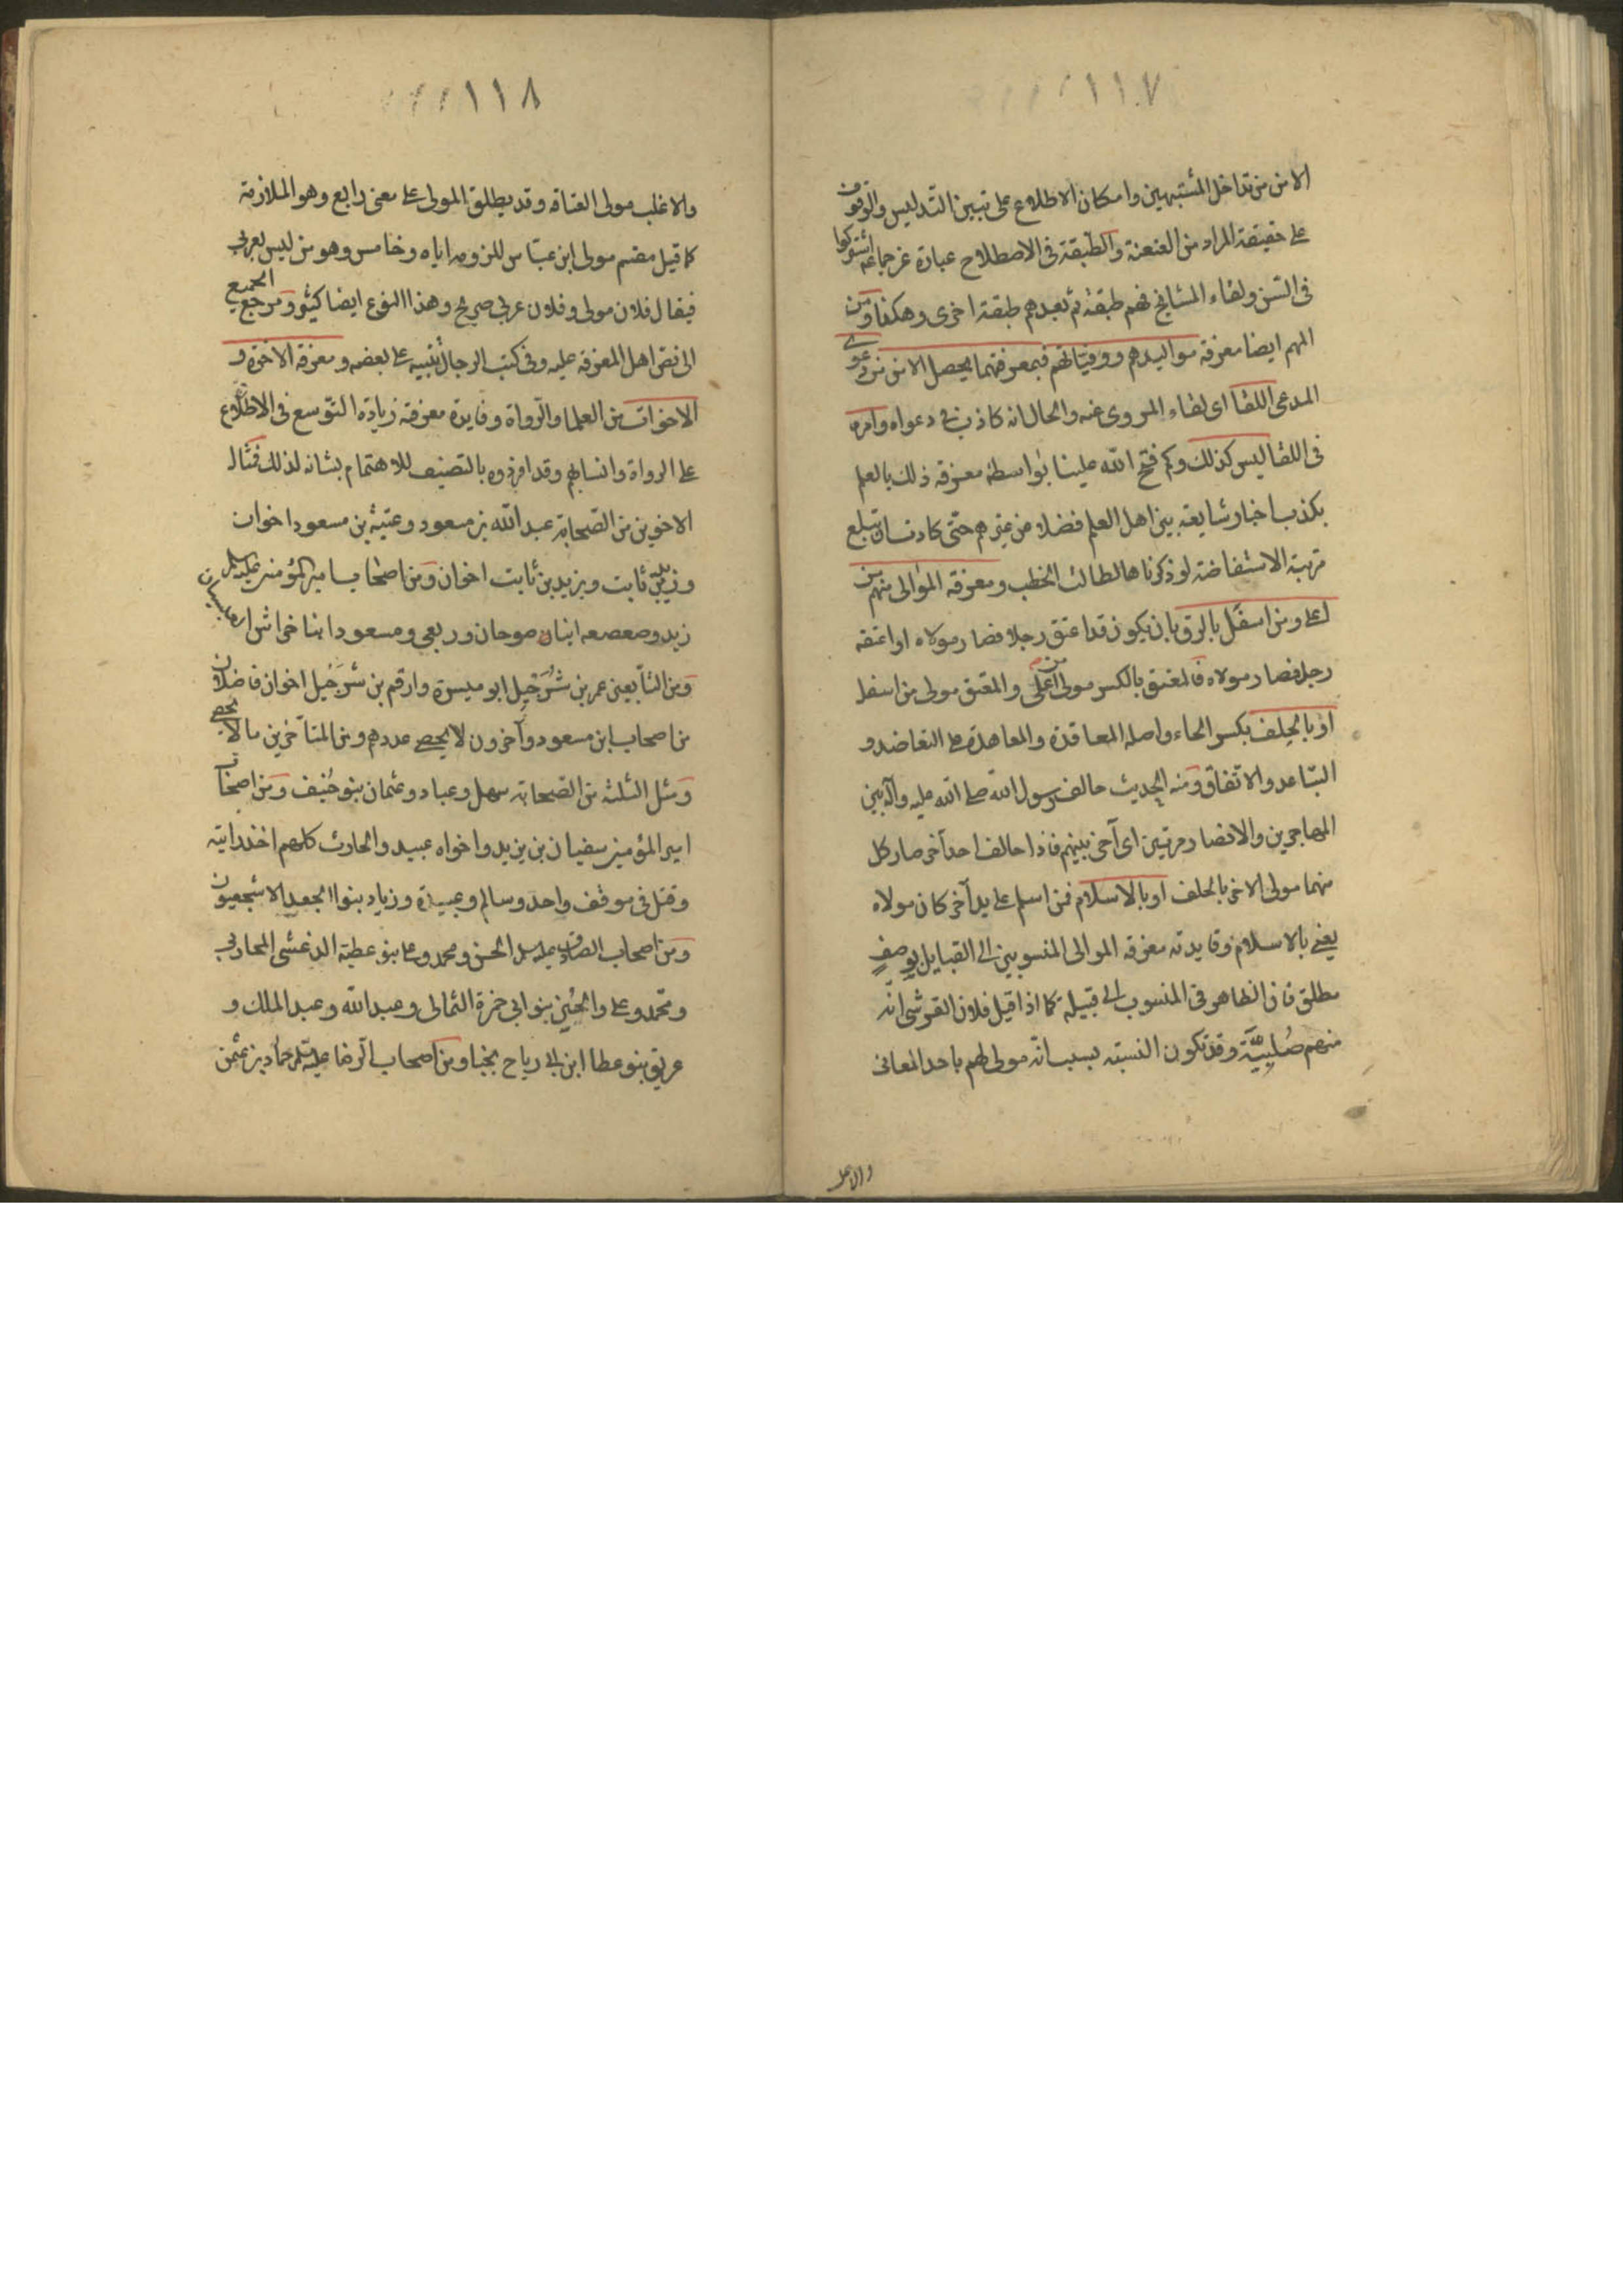 ١١٧
الامن من تداخل المشتبهين وامكان الاطلاع على تبين التدليس والوقوف
على حقيقة المراد من العنعنة والطبقة فى الاصطلاح عبارة عن جماعة اشتركوا
فى السن ولقاء المشايخ فهم طبقة ثم بعدهم طبقة اخرى وهكذا ومن
المهم ايضا معرفة مواليدهم ووفياتهم فبمعرفتهما يحصل الامن من دعوى
المدعى اللقا اى لقاء المروى عنه والحال انه كاذب فى دعواه وامره
فى اللقا ليس كذلك وكم فتح الله علينا بواسطة معرفة ذلك بالعلم
بكذب اخبار شايعة بين اهل العلم فضلا عن غيرهم حتى كادت ان تبلغ
مرتبة الاستفاضة لو ذكرناها لطالت الخطب ومعرفة الموالى منهم من
اعلى ومن اسفل بالرق بان يكون قد اعتق رجلا فصار مولاه او اعتقه
رجل فصار مولاه فالمعتق بالكسر مولى من اعلى والمعتق مولى من اسفل
او بالحلف بكسر الحاء واصله المعاقدة والمعاهدة على التعاضد و
التساعد والاتفاق ومنه الحديث حالف رسول الله صلى الله عليه وآله بين
المهاجرين والانصار مرتين اى آخى بينهم فاذا حالف احد آخر صار كل
منهما مولى الاخر بالحلف او بالاسلام فمن اسلم على يد آخر كان مولاه
يعنى بالاسلام وفايدته معرفة الموالى المنسوبين الى القبايل بوصف
مطلق فان الظاهر فى المنسوب الى قبيلة كما اذا قيل فلان القرشى انه
منهم صُلبيّة وقد تكون النسبة بسبب انه مولى لهم باحد المعانى
والاغلب
١١٨
والاغلب مولى العتاقة وقد يطلق المولى على معنى رابع وهو الملازمة
كما قيل مقسم مولى ابن عباس للزومه اياه وخامس وهو من ليس بعربى
فيقال فلان مولى وفلان عربى صريح وهذا النوع ايضا كثير ومرجع الجميع
الى نص اهل المعرفة عليه وفى كتب الرجال تنبيه على بعضه ومعرفة الاخوة و
الاخوات من العلما والرواة وفايدة معرفة زيادة التوسع فى الاطلاع
على الرواة وانسابهم وقد افردوه بالتصنيف للاهتمام بشانه لذلك فمثال
الاخوين من الصحابة عبد الله بن مسعود وعتبة بن مسعود اخوان
وزيد بن ثابت ويزيد بن ثابت اخوان ومن اصحاب امير المؤمنين عليه السلم
زيد وصعصعه ابنا صوحان وربعى ومسعود ابنا خراش
ومن التابعين عمر بن شُرَحْبِيل ابو ميسرة وارقم بن شرحبيل اخوان فاضلان
من اصحاب ابن مسعود وآخرون لا يحصى عددهم ومن المتاخرين ما لا يحصى
ومثل الثلثة من الصحابة سهل وعباد وعثمان بنو حُنيف ومن اصحاب
امير المؤمنين سفيان بن يزيد واخواه عبيد والحارث كلهم اخذ رايته
وقتل فى موقف واحد وسالم وعبيدة وزياد بنوا الجعد الاشجعيون
ومن اصحاب الصادق عليه السلم الحسن ومحمد وعلى بنو عطية الدغشى المحاربى
ومحمد وعلى والحسين بنو ابى حمزة الثمالى وعبد الله وعبد الملك و
عريق بنو عطا ابن ابى رياح نجبا ومن اصحاب الرضا عليه السلم حماد بن عثمن